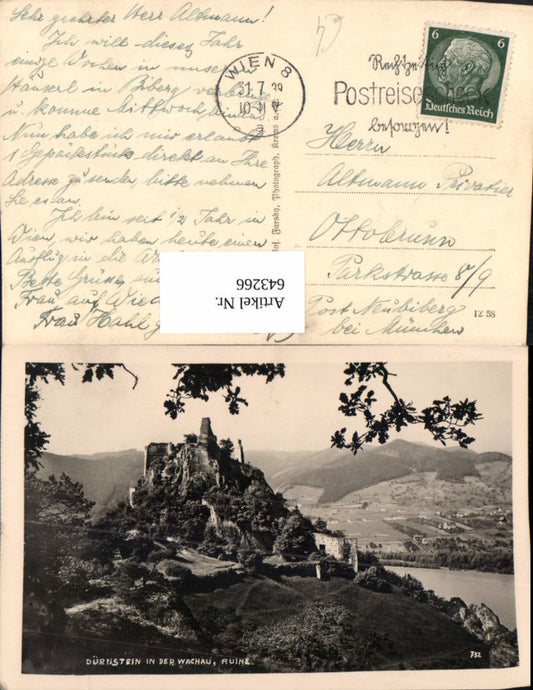 Sehr geehrter Herr Altmann!
Ich will dieses Jahr
einige Wochen in unserem
Häuserl in Biberg
u. komme Mittwoch
Nun habe ich mir erlaubt
1 Gepäckstück direkt an Ihre
Adresse zu senden, bitte nehmen
Sie es an.
Ich bin seit 1/2 Jahr in
Wien, wir haben heute einen
Ausflug in die
Beste Grüße
Frau, auf
Frau Hahl
53
WIEN 8
31.7 39
10
a
Rechtzeitig
Postreisescheck
besorgen!
6 6
Deutsches Reich
Jos. Farsky, Photograph, Krems a. d.
Herrn
Altmann Privatier
Ottobrunn
Parkstrasse 8/9
Post Neubiberg
bei München
Artikel Nr.
643266
DÜRNSTEIN IN DER WACHAU, RUINE.
732